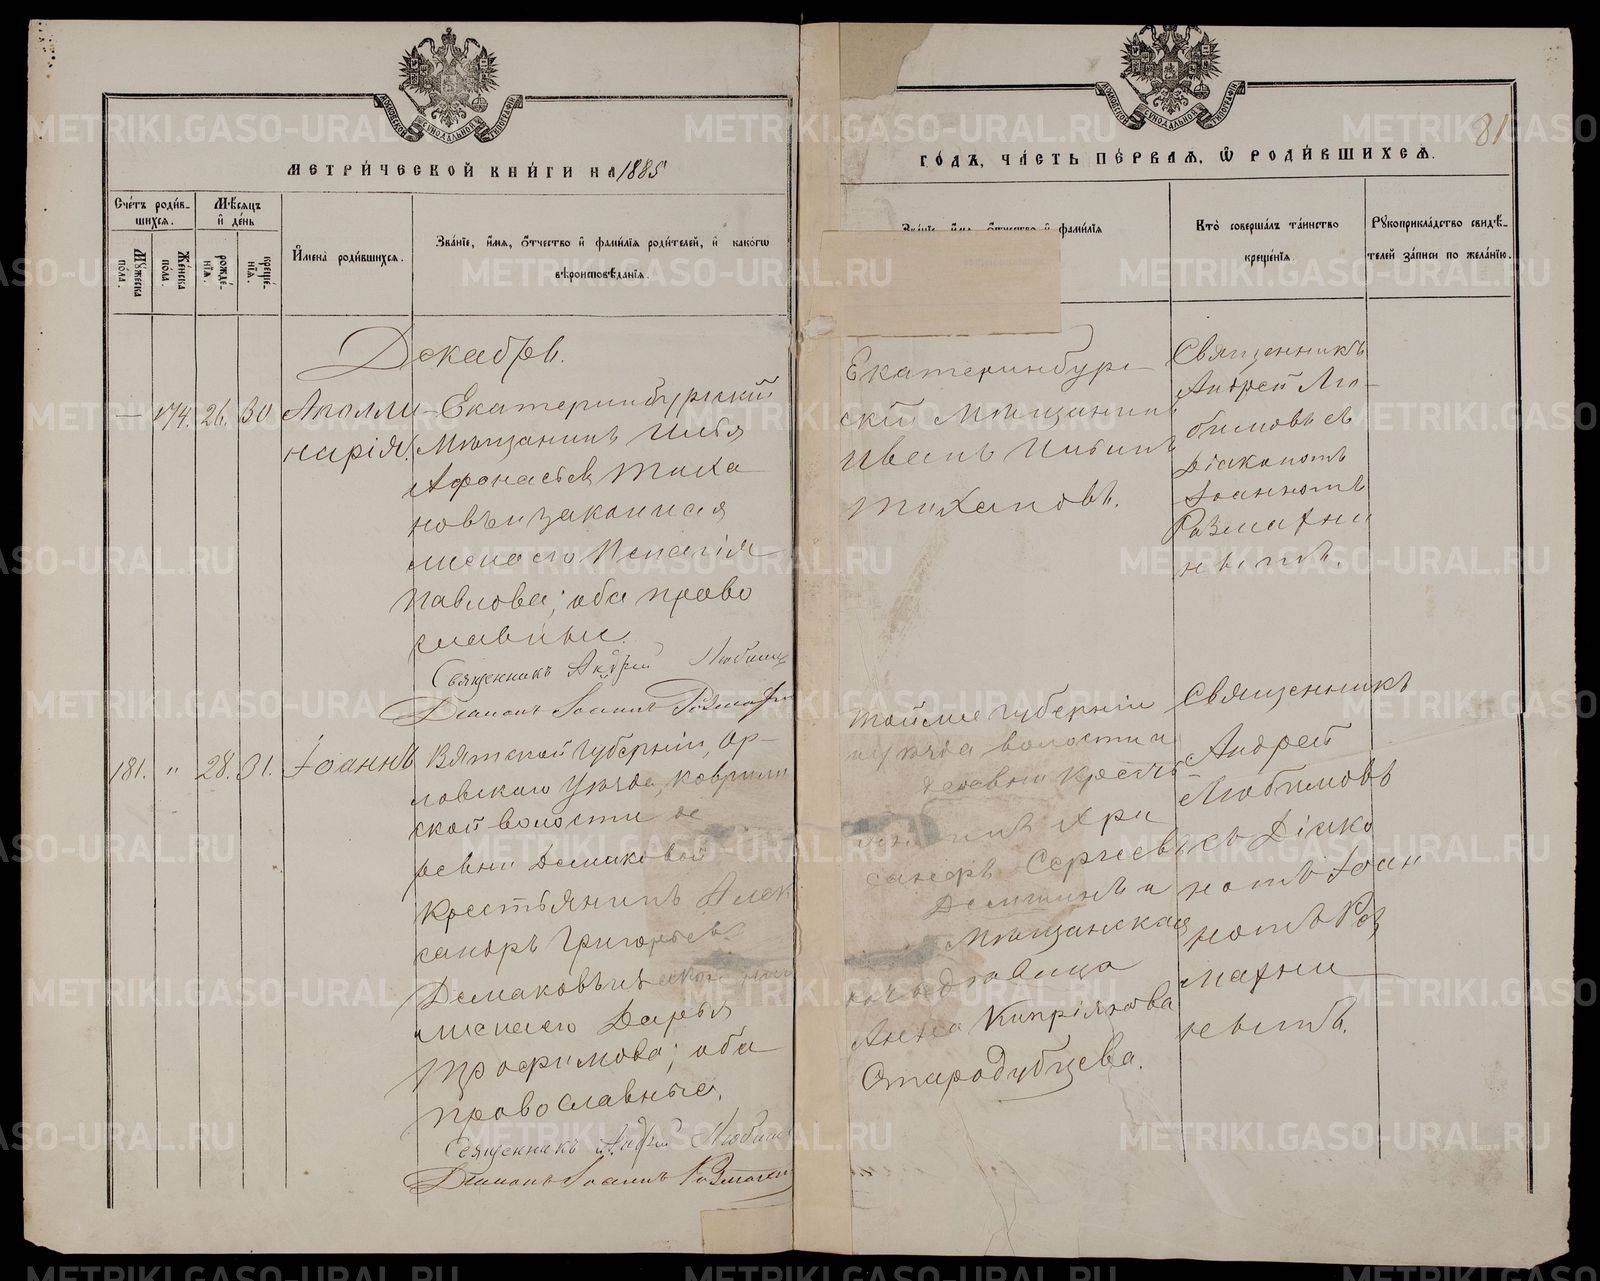 МЕТРИ́ЧЕСКОЙ КНИ́ГИ НА 1885
Сче́тъ роди́в-
шихся.
Мѣ́сяцъ
и҆ де́нь
Му́жеска
пола.
Же́нска
пола.
рожде́-
нїя.
креще́-
нїя.
И҆мена̀ роди́вшихся.
Зва́нїе, и҆́мя, ѻ҆́тчество и҆ фами́лїя роди́телей, и҆ како́гѡ
вѣроисповѣ́данїя.
Декабрь.
— 174. 26. 30 Аполли-
нарія.
Екатеринбургскій
Мѣщанинъ Илья
Афонасьевъ Тиха
новъ и законная
жена его Пелагія
Павлова; оба право
славные.
Священникъ Андрей Любимовъ
Діаконъ Іоаннъ Размахнинъ
181. " 28. 31. Іоаннъ
Вятской губерніи, Ор-
ловскаго Уѣзда,
ской волости де
ревни Демаковой
Крестьянинъ Алек
сандръ Григорьевъ
Демаковъ и законная
жена его Дарья
Трофимова; оба
православные.
Священникъ Андрей Любимовъ
Діаконъ Іоаннъ Размахнинъ
81
ГО́ДЪ, ЧА́СТЬ ПЕ́РВАЯ, Ѿ РОДИ́ВШИХСЯ.
Зва́нїе, и҆́мя, ѻ҆́тчество и҆ фами́лїя
Кто̀ соверша́лъ та́инство
креще́нїя
Рукоприкла́дство свидѣ́-
телей за́писи по жела́нїю.
Екатеринбург-
скій Мѣщанинъ
Иванъ Ильинъ
Тихановъ.
Священникъ
Андрей Лю-
бимовъ съ
Діакономъ
Іоанномъ
Размахни
нымъ.
губерніи
уѣзда волости и
деревни Кресть-
янинъ
Сергѣевъ
и
Мѣщанская
дѣвица
Анна Кипріянова
Стародубцева.
Священникъ
Андрей
Любимовъ
съ Діако
номъ Іоан
номъ Раз
махни
нымъ.